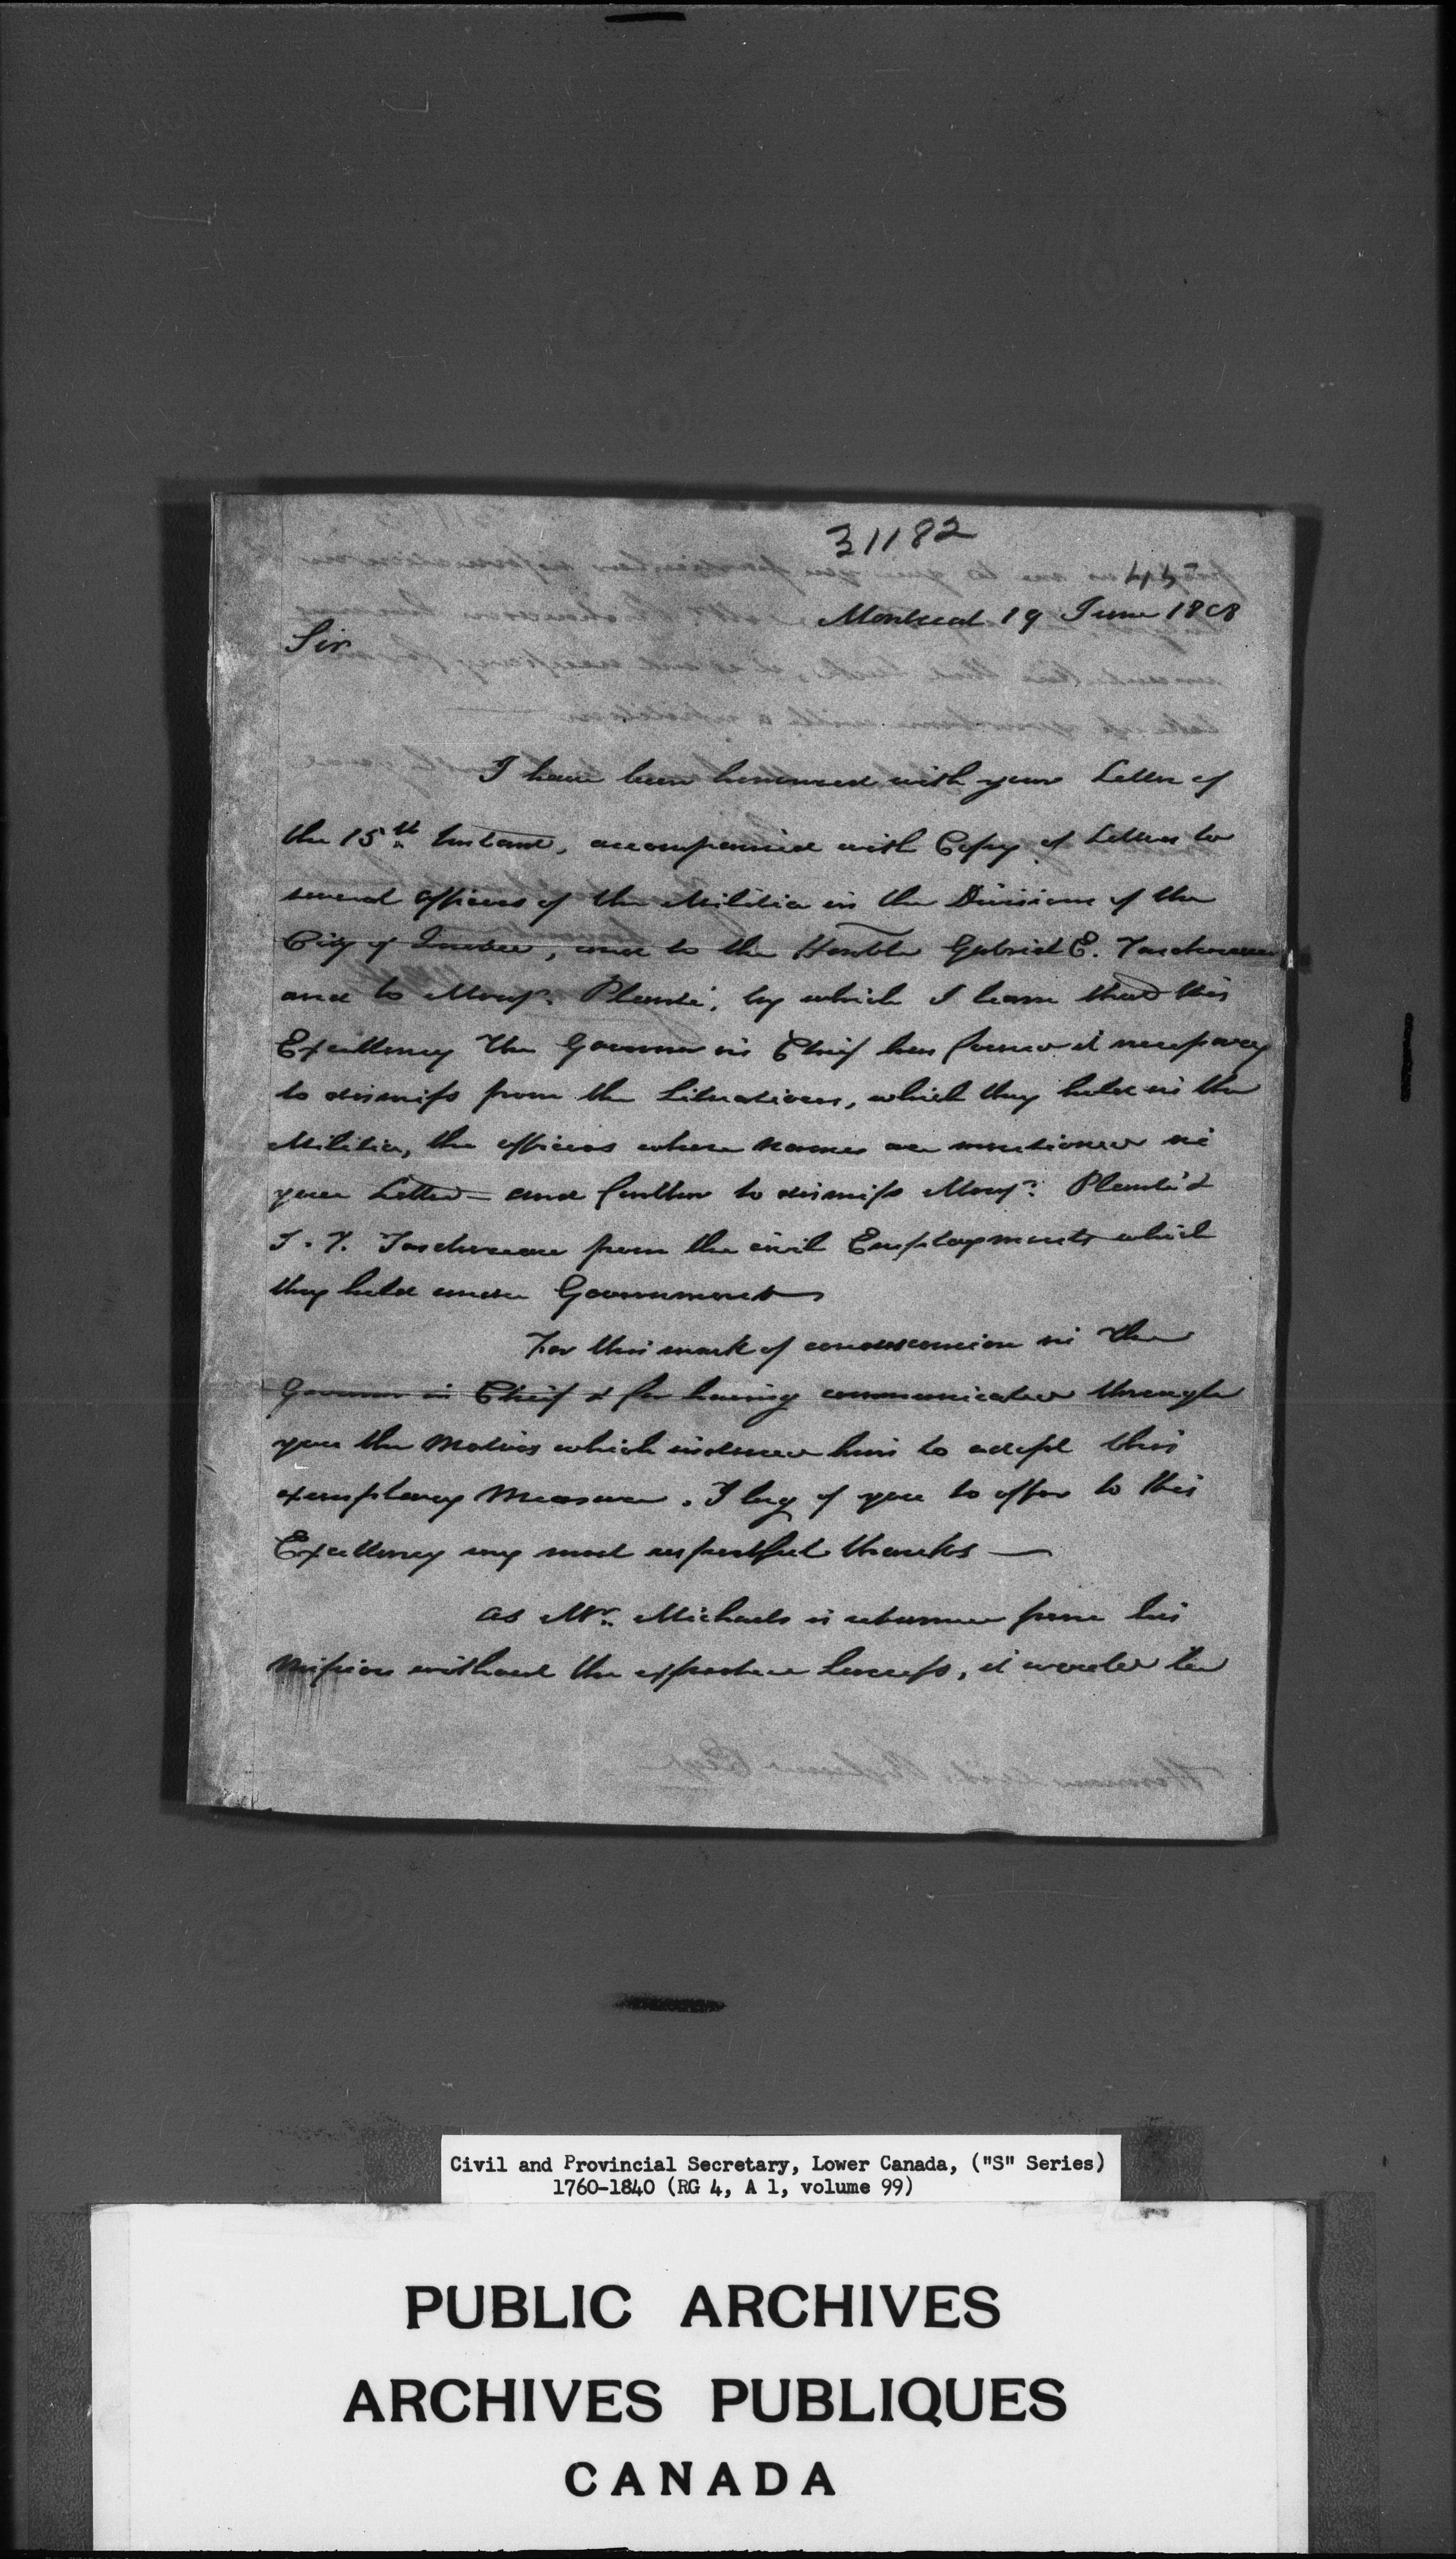 31182
45
Montreal 19 June 1808
Sir
I have been honoured with your Letter of
the 15th Instant, accompanied with Copy of Letters to
several officers of the Militia in the Divisions of the
City of Quebec, and to the Honble Gabriel E. Taschereau
and to Mousr. Planté, by which I learn that His
Excellency The Governor in Chief has found it necessary
to dismiss from the Situations, which they held in the
Militia, the officers whose names are mentioned in
your Letter — and further to dismiss Mousr. Planté &
J. T. Taschereau from the civil Employments which
they held under Government
For this mark of condescension in The
Governor in Chief & for having communicated through
you the Motives which induced him to adopt this
exemplary Measure. I beg of you to offer to His
Excellency my most respectful thanks —
As Mr. Michaels is returned from his
Mission without the expected Success, it would be
Civil and Provincial Secretary, Lower Canada, ("S" Series)
1760-1840 (RG 4, A 1, volume 99)
PUBLIC ARCHIVES
ARCHIVES PUBLIQUES
CANADA